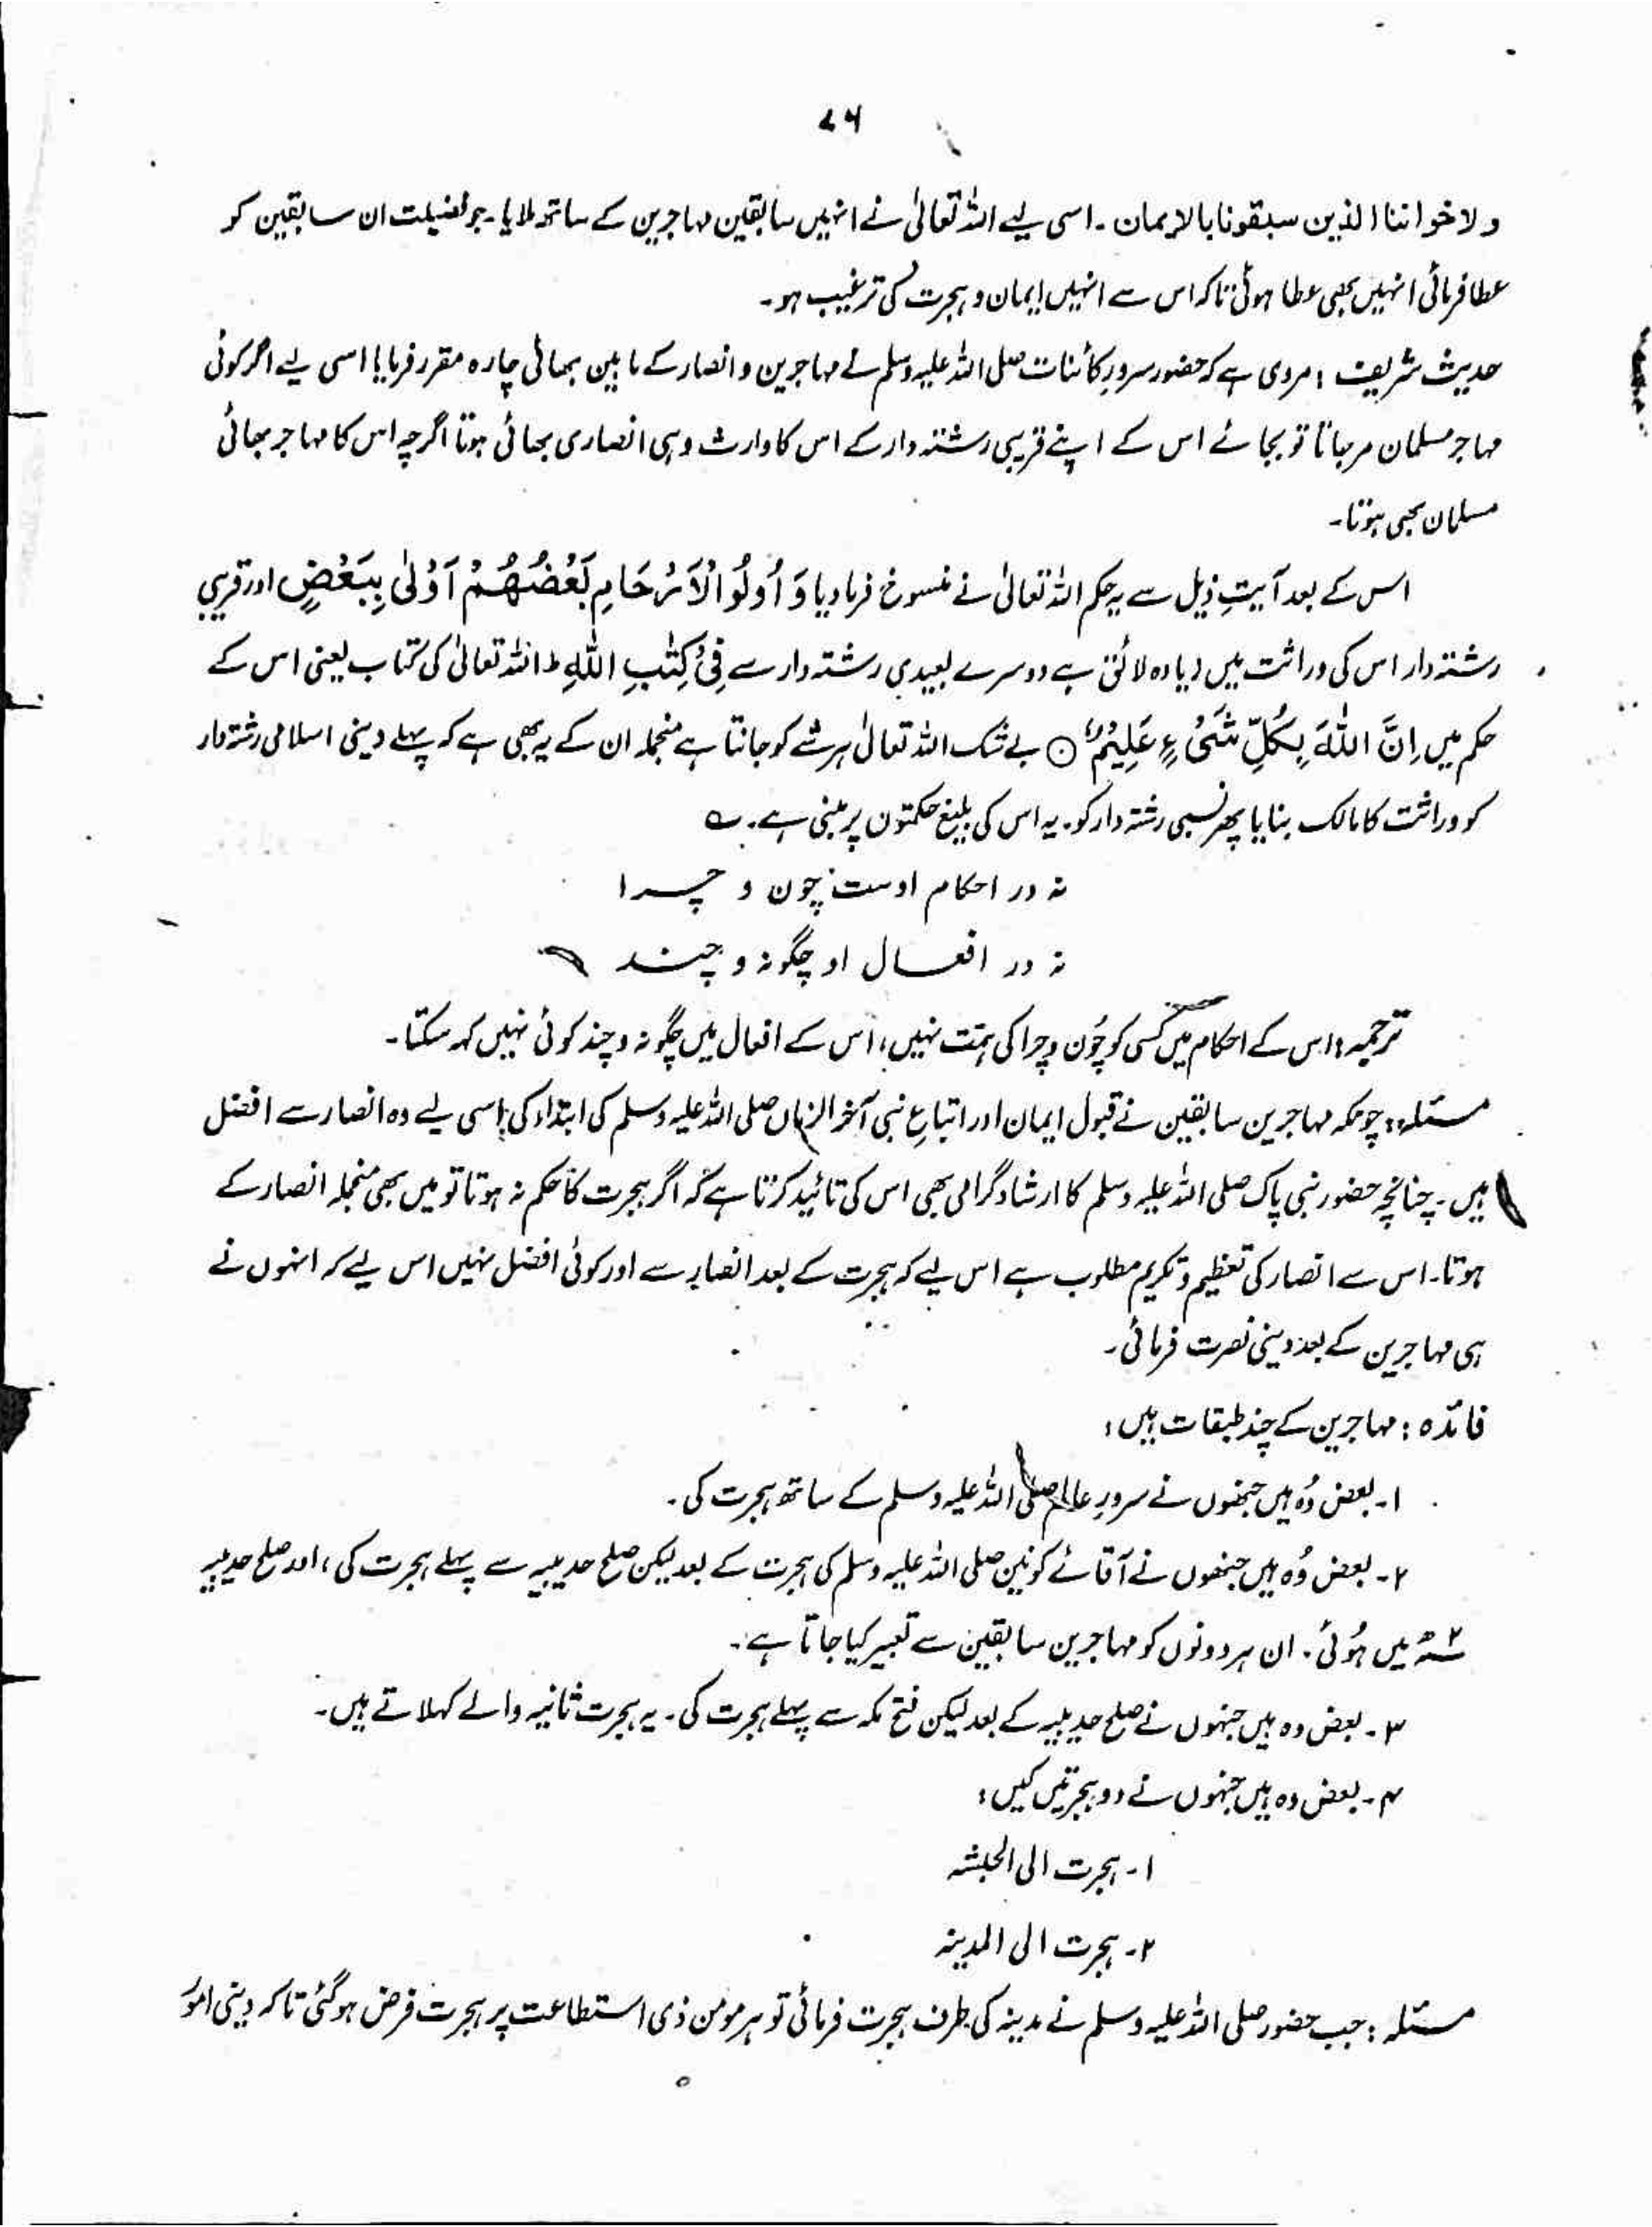 ۷۶
ولاخواننا الذین سبقونا بالایمان ۔ اسی لیے اللہ تعالیٰ نے انہیں سابقین مہاجرین کے ساتھ ملایا۔ جو فضیلت ان سابقین کو
عطا فرمائی انہیں بھی عطا ہوئی تاکہ اس سے انہیں ایمان و ہجرت کی ترغیب ہو۔
حدیث شریف : مروی ہے کہ حضور سرورِ کائنات صلی اللہ علیہ وسلم نے مہاجرین و انصار کے مابین بھائی چارہ مقرر فرمایا اسی لیے اگر کوئی
مہاجر مسلمان مرجاتا تو بجائے اس کے اپنے قریبی رشتہ دار کے اس کا وارث وہی انصاری بھائی ہوتا اگرچہ اس کا مہاجر بھائی
مسلمان بھی ہوتا۔
اس کے بعد آیتِ ذیل سے یہ حکم اللہ تعالیٰ نے منسوخ فرمادیا وَ اُولُوا الْاَرْحَامِ بَعْضُهُمْ اَوْلٰى بِبَعْضٍ اور قریبی
رشتہ دار اس کی وراثت میں زیادہ لائق ہے دوسرے بعیدی رشتہ دار سے فِیْ كِتٰبِ اللّٰهِ ط اللہ تعالیٰ کی کتاب یعنی اس کے
حکم میں اِنَّ اللّٰهَ بِكُلِّ شَیْءٍ عَلِيْمٌ ۝ بے شک اللہ تعالیٰ ہر شے کو جانتا ہے منجملہ ان کے یہ بھی ہے کہ پہلے دینی اسلامی رشتہ دار
کو وراثت کا مالک بنایا پھر نسبی رشتہ دار کو۔ یہ اس کی بلیغ حکمتوں پر مبنی ہے۔ ؎
نہ در احکام اوست چون و چرا
نہ در افعال او چگونہ و چند
ترجمہ : اس کے احکام میں کسی کو چُون و چرا کی ہمت نہیں، اس کے افعال میں چگونہ و چند کوئی نہیں کہہ سکتا۔
مسئلہ : چونکہ مہاجرین سابقین نے قبول ایمان اور اتباعِ نبی آخرالزماں صلی اللہ علیہ وسلم کی ابتداء کی، اسی لیے وہ انصار سے افضل
ہیں۔ چنانچہ حضور نبی پاک صلی اللہ علیہ وسلم کا ارشاد گرامی بھی اس کی تائید کرتا ہے کہ اگر ہجرت کا حکم نہ ہوتا تو میں بھی منجملہ انصار کے
ہوتا۔ اس سے انصار کی تعظیم و تکریم مطلوب ہے اس لیے کہ ہجرت کے بعد انصار سے اور کوئی افضل نہیں اس لیے کہ انہوں نے
ہی مہاجرین کے بعد دینی نصرت فرمائی۔
فائدہ : مہاجرین کے چند طبقات ہیں :
۱۔ بعض وُہ ہیں جنھوں نے سرورِ عالم صلی اللہ علیہ وسلم کے ساتھ ہجرت کی۔
۲۔ بعض وُہ ہیں جنھوں نے آقائے کونین صلی اللہ علیہ وسلم کی ہجرت کے بعد لیکن صلح حدیبیہ سے پہلے ہجرت کی ، اور صلح حدیبیہ
میں ہُوئی۔ ان ہر دونوں کو مہاجرین سابقین سے تعبیر کیا جاتا ہے۔
۳۔ بعض وہ ہیں جنہوں نے صلح حدیبیہ کے بعد لیکن فتح مکہ سے پہلے ہجرت کی۔ یہ ہجرت ثانیہ والے کہلاتے ہیں۔
۴۔ بعض وہ ہیں جنہوں نے دو ہجرتیں کیں :
۱۔ ہجرت الی الحبشہ
۲۔ ہجرت الی المدینہ
مسئلہ : جب حضور صلی اللہ علیہ وسلم نے مدینہ کی طرف ہجرت فرمائی تو ہر مومن ذی استطاعت پر ہجرت فرض ہوگئی تاکہ دینی امور